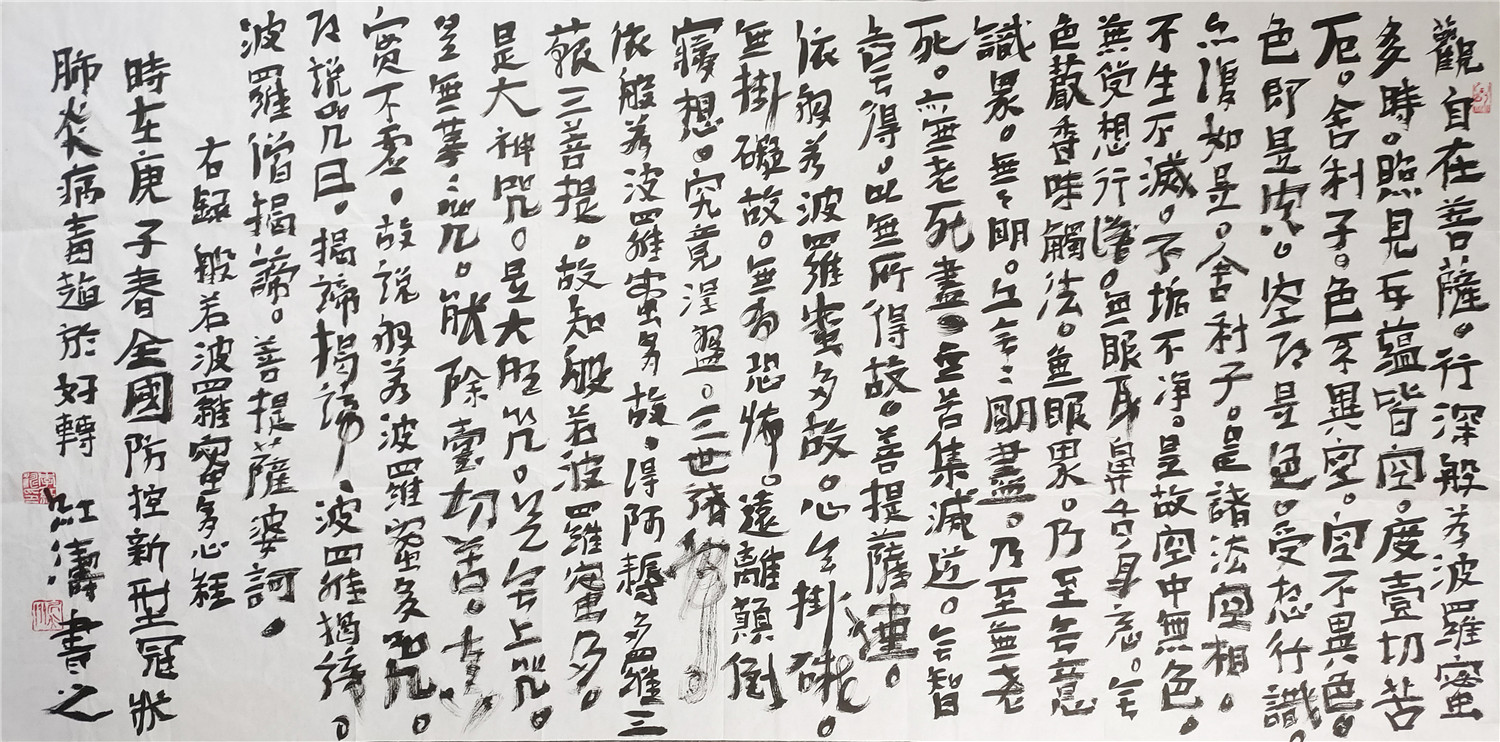 觀自在菩薩。行深般若波羅蜜
多時。照見五蘊皆空。度壹切苦
厄。舍利子。色不異空。空不異色。
色即是空。空即是色。受想行識。
亦復如是。舍利子。是諸法空相。
不生不滅。不垢不净。是故空中無色。
無受想行識。無眼耳鼻舌身意。無
色聲香味觸法。無眼界。乃至無意
識界。無無明。亦無無明盡。乃至無老
死。亦無老死盡。無苦集滅道。無智
亦無得。以無所得故。菩提薩埵。
依般若波羅蜜多故。心無掛礙。
無掛礙故。無有恐怖。遠離顛倒
夢想。究竟涅槃。三世諸佛
依般若波羅蜜多故。得阿耨多羅三
藐三菩提。故知般若波羅蜜多。
是大神咒。是大明咒。是無上咒。
是無等等咒。能除壹切苦。真
實不虛。故說般若波羅蜜多咒。
即說咒曰。揭諦揭諦。波羅揭諦。
波羅僧揭諦。菩提薩婆訶。
右録般若波羅蜜多心經
時在庚子春全國防控新型冠狀
肺炎病毒趋於好轉 紅濤書之